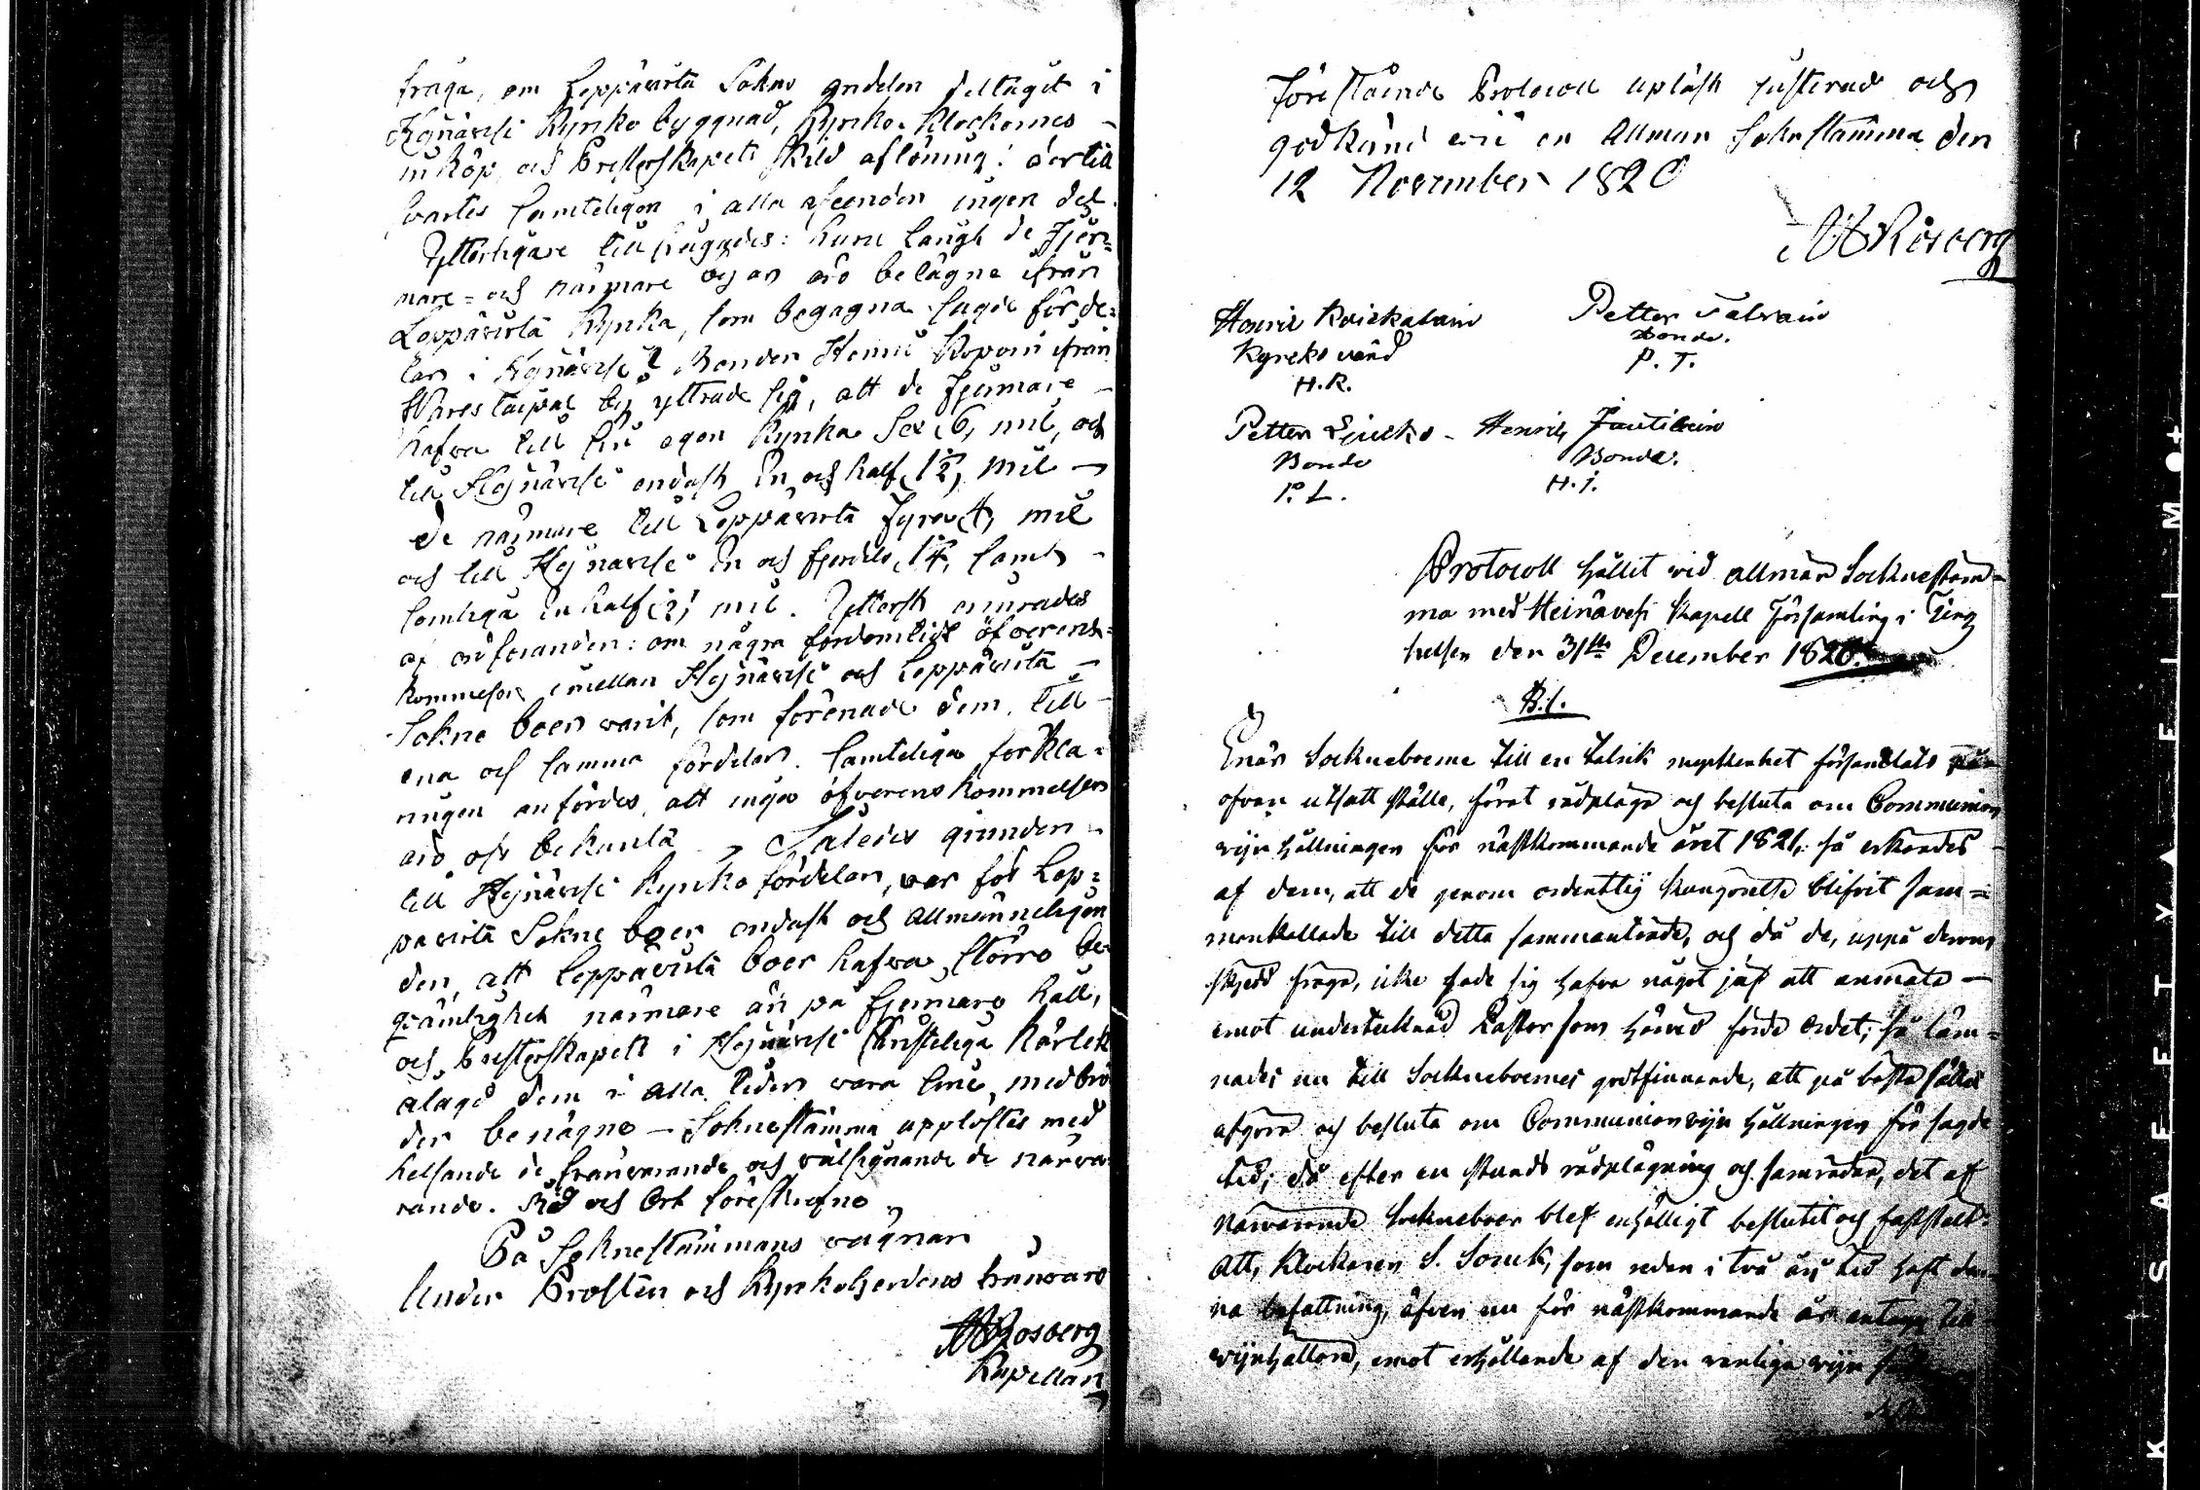 fråga, om Leppävirta Sokns andelen deltagit i
Hejnävesi Kyrko byggnad, Kyrko-Klockornes
inköp, och Presterskapets skild aflöning: dertill
swartes samteligen i alla afseenden ingen del.
Ytterligare tillfrågades: huru långt de fjer-
mare- och närmare byar äro belägne ifrån
Leppävirta Kyrka, som begagna sagde förde-
lar i Hejnävesi? Bonden Henric Koponen ifrån
by yttrade sig, att de fjermare
hafva till sin egen Kyrka Sex, 6, mil, och
till Hejnävesi endast En och half, 1½, mil
de närmare till Leppävirta fyra, 4, mil
och till Hejnävesi En och fjerdels, 1¼, samt
somliga En half, ½, mil. Ytterst
af ordföranden: om några fordomtids öfverens-
kommelser emellan Hejnävesi och Leppävirta
Sokne boer varit, som förenade dem till
ena och samma fördelar. Samteliga förkla-
ringen anfördes, att inga öfverenskommelser
äro oss bekanta. Således grunden
till Hejnävesi Kyrko fördelar, var för Lep-
pävirta Sokne boer endast och allmänneligen
den, att Leppävirta boer hafva större be-
qvämlighet närmare än på fjermare håll,
och Presterskapets i Hejnävesi Christeliga Kärlek
ålagd dem i alla tider vara sine medbrö
der benägne — Sokne stämma upplöstes med
helsande de frånvarande och välsignande de närva-
rande. Tid och Ort föreskrefne
På Soknestämmans vägnar
Under Prosten och Kyrkoherdens frånvaro
Rosberg
Kapellan
Föreståënde Protocoll upläst justerad och
godkänd wid en Allmän Soknestämma den
12 November 1820
Rosberg
Henric
Petter
Kyrko värd
Bonde.
H.R.
P. T.
Petter
Henric
Bonde
Bonde.
P. L.
H. J.
Protocoll hållit wid allmän Socknestäm-
ma med Heinävesi Kapell Församling i
helsen den 31ste December 1820.
§.1.
Enär Sockneboerne till en talrik myckenhet församlats på
ofvan utsatt ställe, förat rådpläga och besluta om Communion
wijn hållningen för nästkommande året 1821, så erkendes
af dem, att de genom ordentelig kungörelse blifvit sam-
mankallade till detta sammanträde, och då de, uppå derom
skjedd fråga, icke sade sig hafva något jäf att anmäla —
emot undertecknad Pastor som härvid förde Ordet; så läm-
nades nu till Sockneboernes godtfinnande, att på bästa sättet
afgöra och besluta om Communionwijn hållningen för sagde
tid; då efter en stunds rådplägning och samråden, det af
närvarande Sockneboer blef enhälligt beslutit och fastställt
att, Klockaren S. Sonck, som redan i två års tid haft den-
na befattning, äfven nu för nästkommande år antages till
wijnhållare, emot erhållande af den vanliga wijn